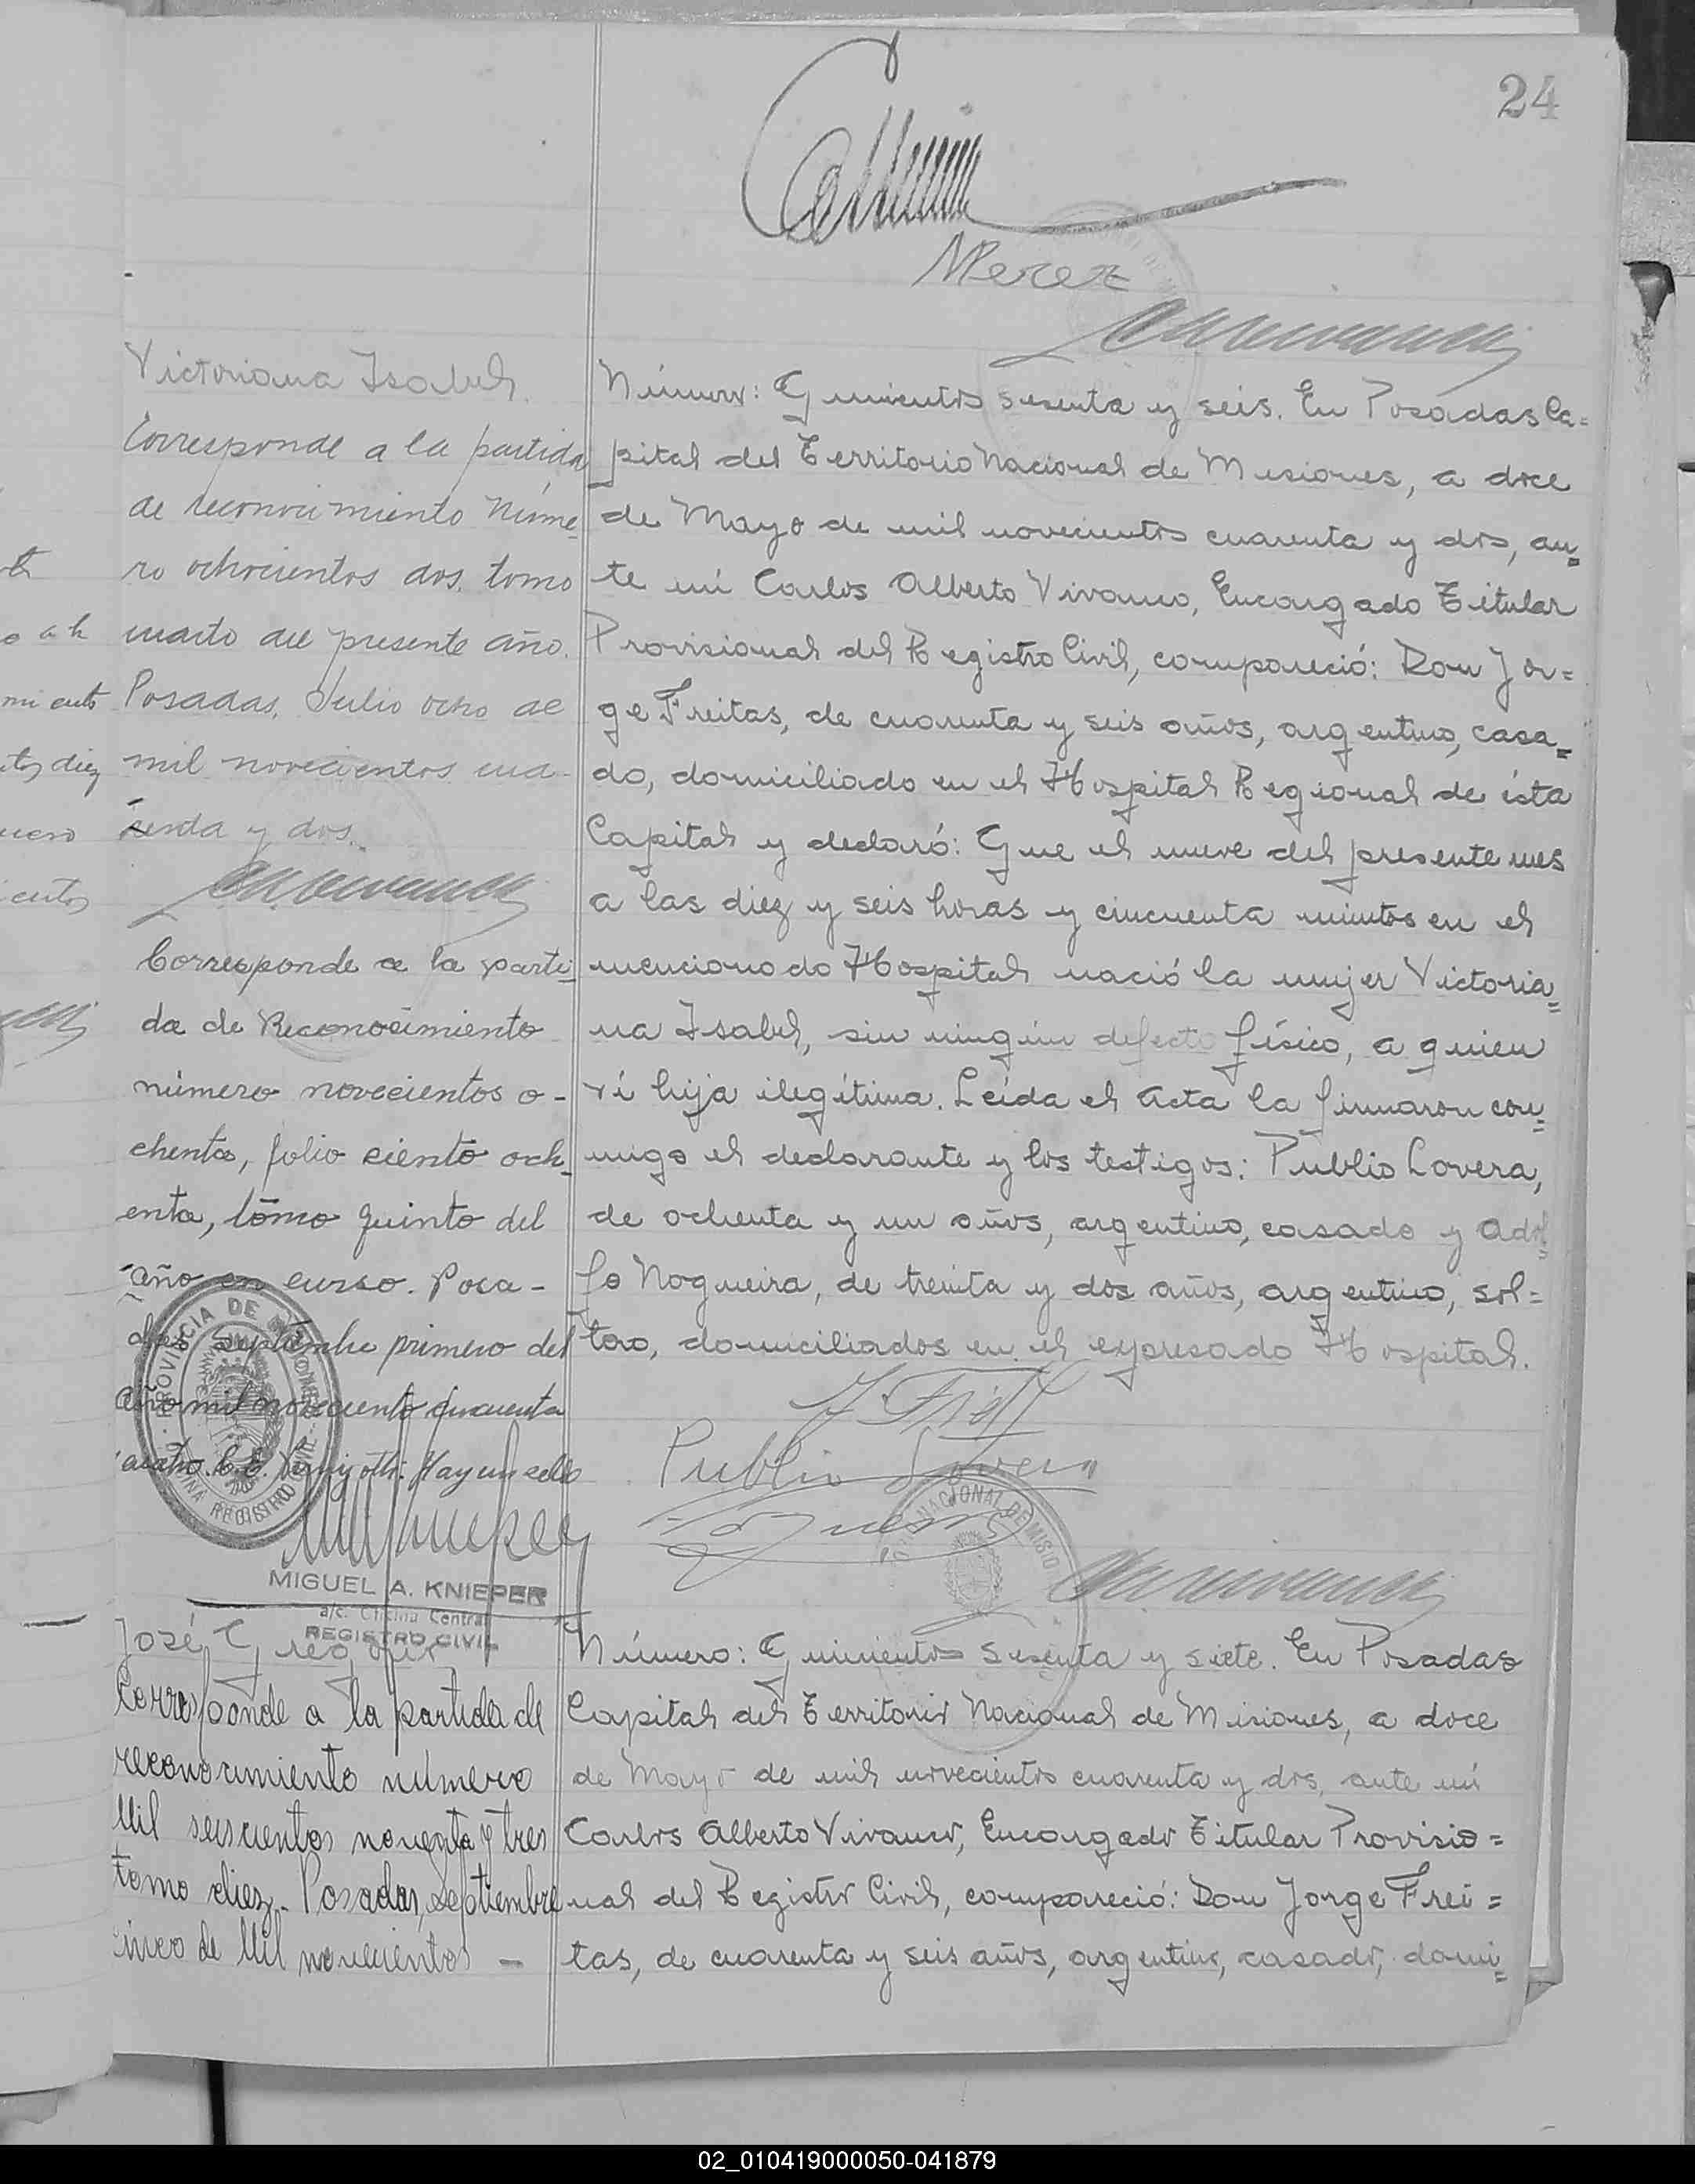 24
Victoriana Isabel.
Corresponde a la partida
de reconocimiento núme-
ro ochocientos dos. tomo
cuarto del presente año.
Posadas, Julio ocho de
mil novecientos cua-
renta y dos.
Corresponde a la parti-
da de Reconocimiento
número novecientos o-
chenta, folio ciento och-
enta, tomo quinto del
año en curso. Posa-
das septiembre primero del
año mil novecientos cincuenta
cuatro. Hay un sello
PROVINCIA DE MISIONES
REGISTRO CIVIL
MIGUEL A. KNIEPER
a/c. Oficina Central
REGISTRO CIVIL
Número: Quinientos sesenta y seis. En Posadas Ca=
pital del Territorio Nacional de Misiones, a doce
de Mayo de mil novecientos cuarenta y dos, an=
te mí Carlos Alberto Vivanco, Encargado Titular
Provisional del Registro Civil, compareció: Don Jor=
ge Freitas, de cuarenta y seis años, argentino, casa=
do, domiciliado en el Hospital Regional de ésta
Capital y declaró: Que el nueve del presente mes
a las diez y seis horas y cincuenta minutos en el
mencionado Hospital nació la mujer Victoria=
na Isabel, sin ningún defecto físico, a quien
ví hija ilegítima. Leída el Acta la firmaron con=
migo el declarante y los testigos: Publio Lovera,
de ochenta y un años, argentino, casado y Adol=
fo Nogueira, de treinta y dos años, argentino, sol=
tero, domiciliados en el expresado Hospital.
Publio Lovera
José Gregorio
Corresponde a la partida de
reconocimiento número
Mil seiscientos noventa y tres
tomo diez.- Posadas, septiembre
cinco de Mil novecientos -
Número: Quinientos sesenta y siete. En Posadas
Capital del Territorio Nacional de Misiones, a doce
de Mayo de mil novecientos cuarenta y dos, ante mí
Carlos Alberto Vivanco, Encargado Titular Provisio=
nal del Registro Civil, compareció: Don Jorge Frei=
tas, de cuarenta y seis años, argentino, casado, domi=
02_010419000050-041879